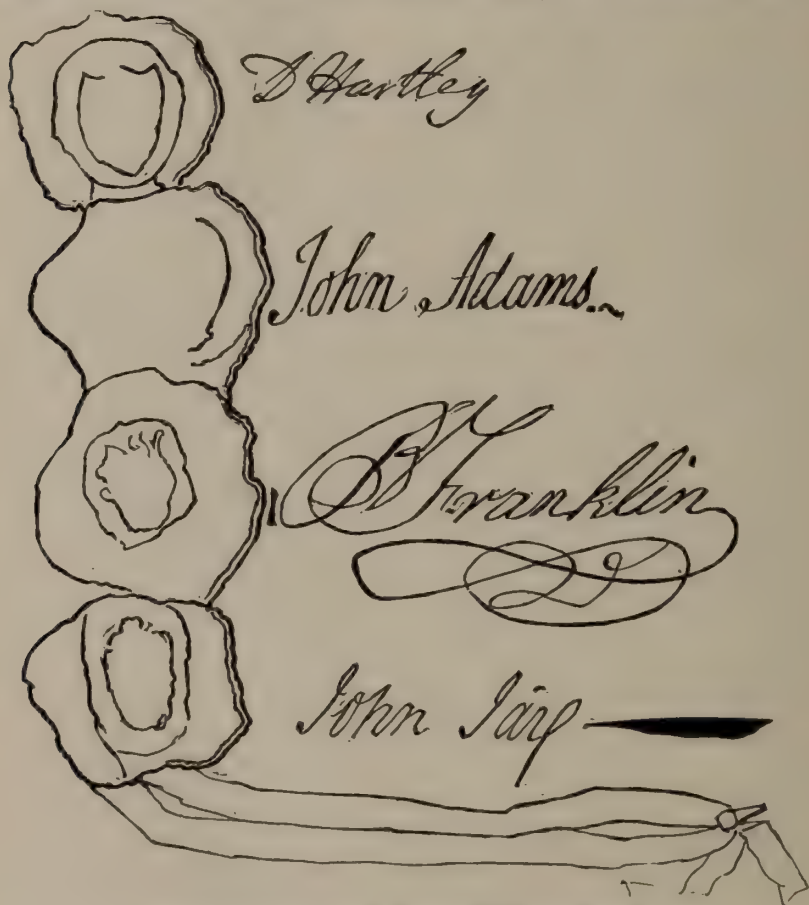 D Hartley
John Adams.~
B Franklin
John Jay